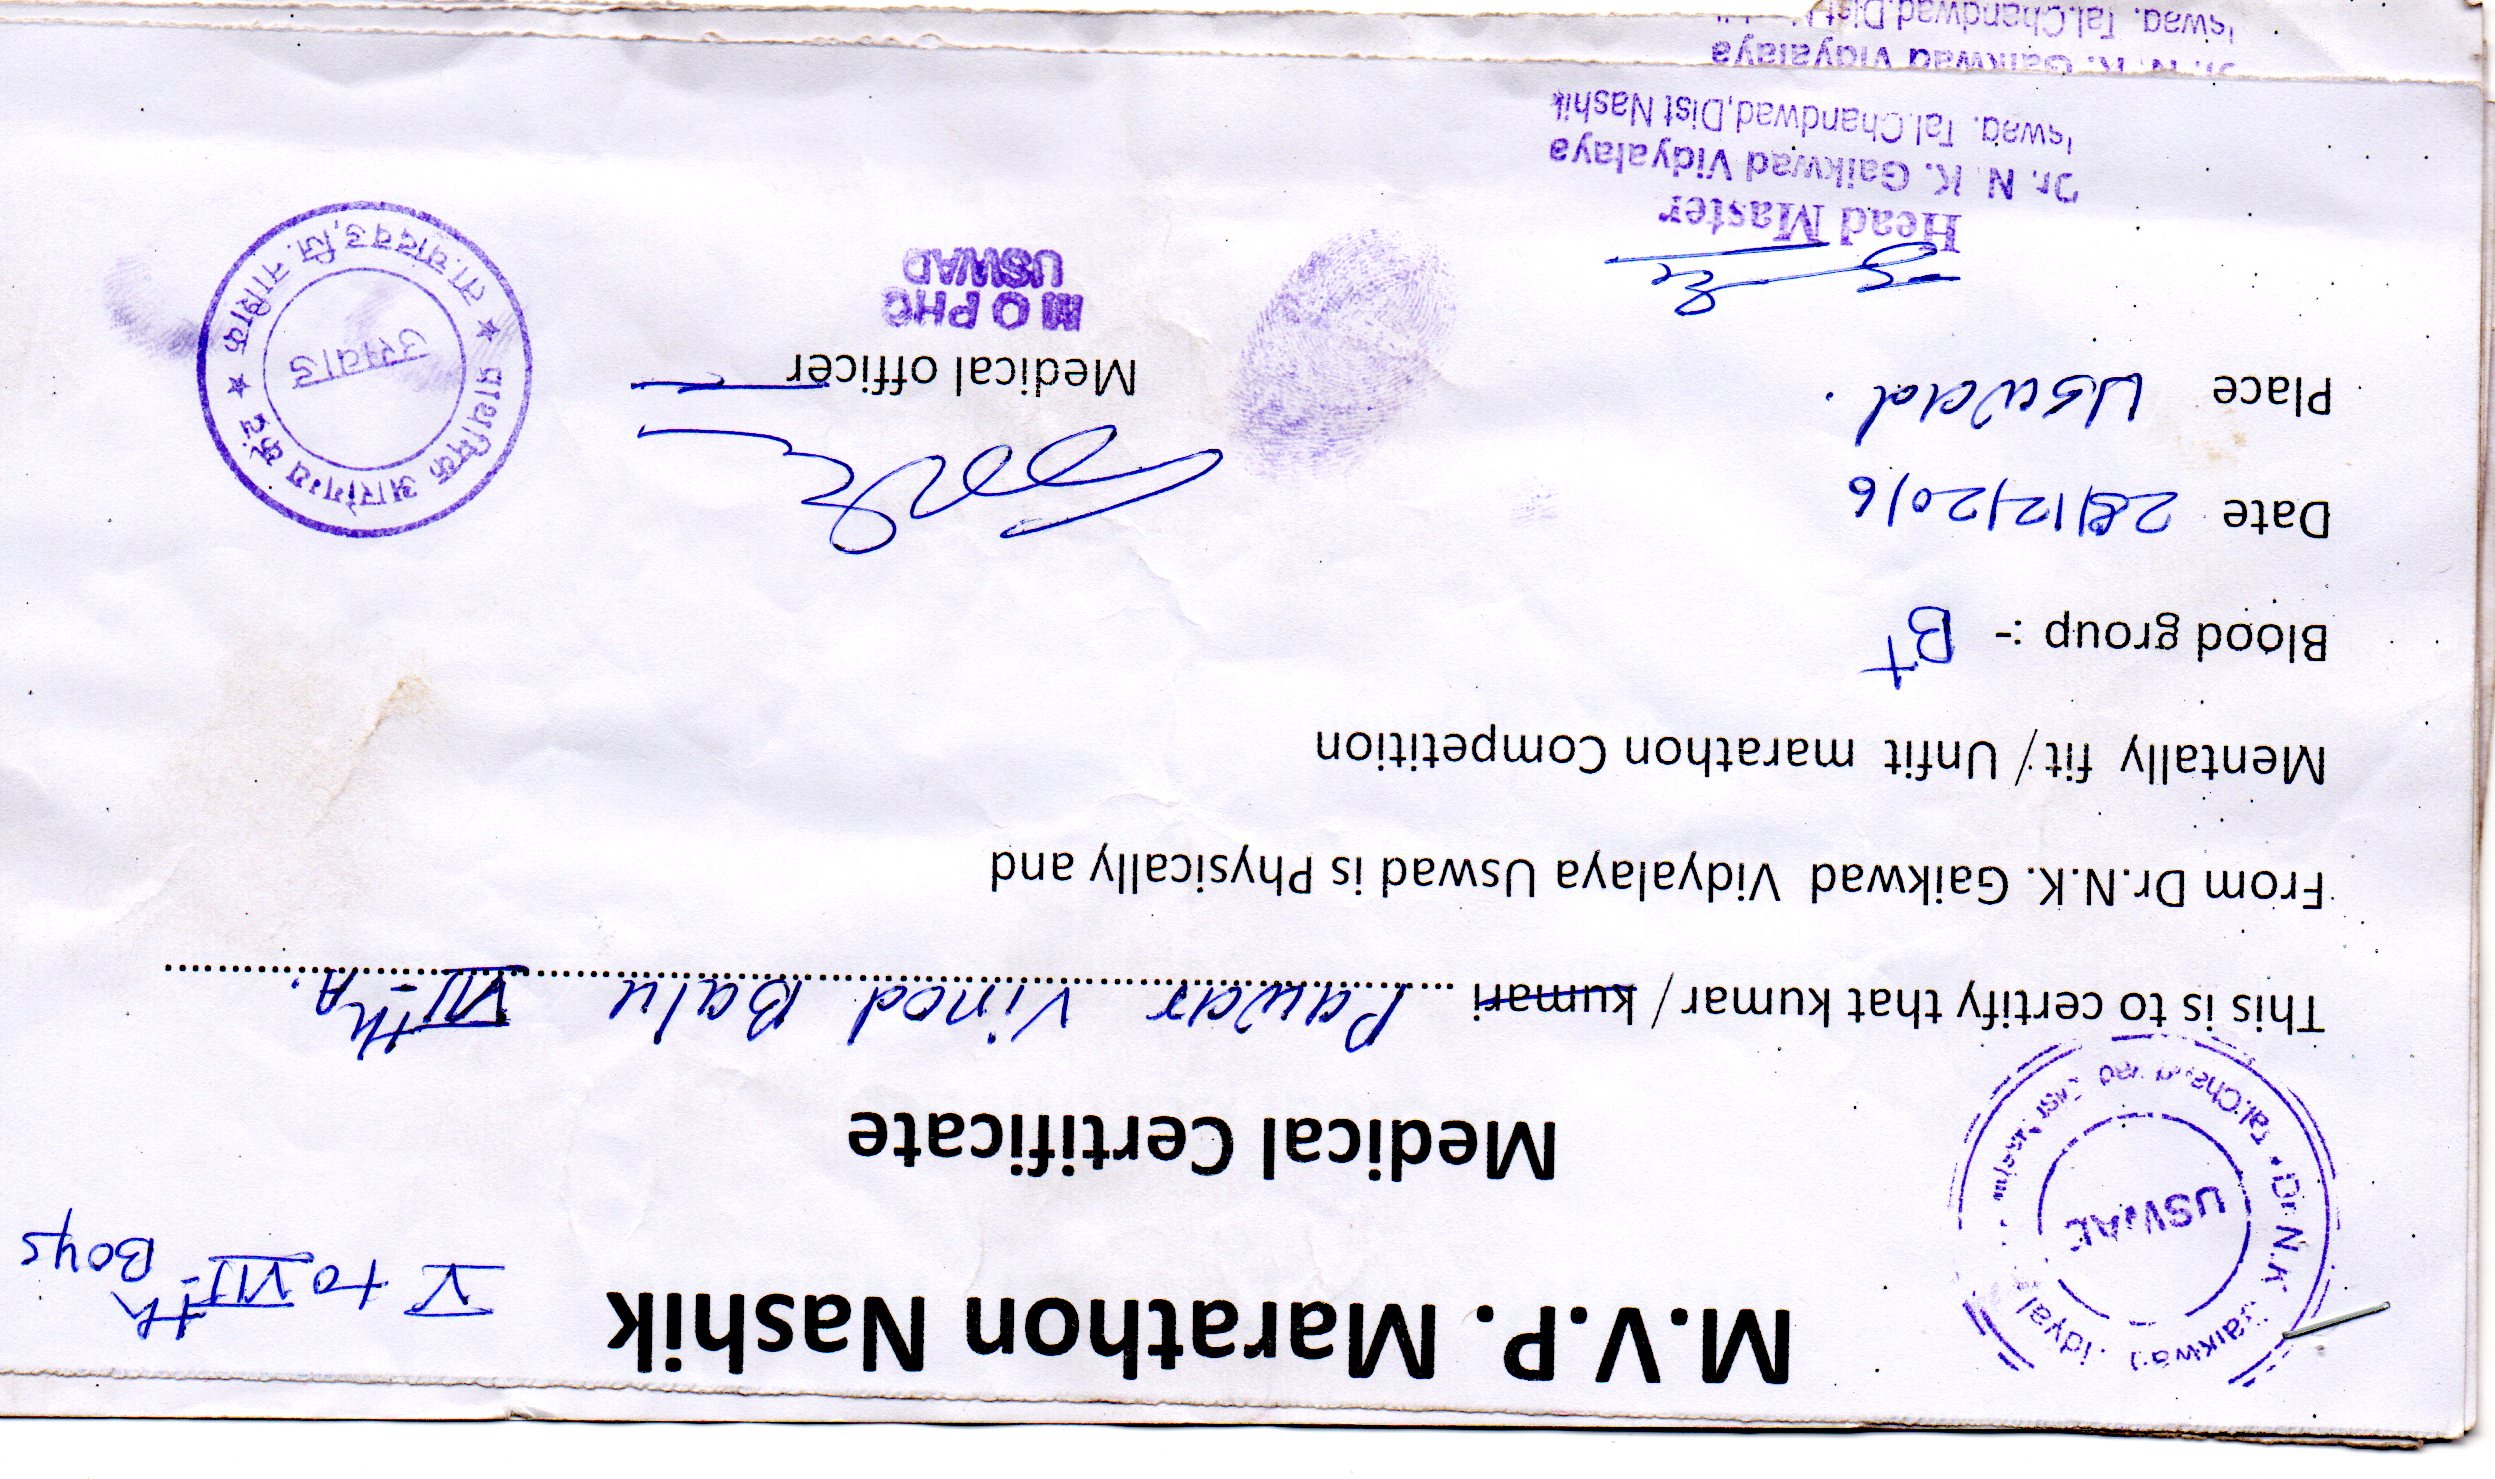 M.V.P. Marathon Nashik
V to VII th
Boys
Medical Certificate
USWAD
This is to certify that kumar / kumari Pawar Vinod Balu VII th A.
From Dr.N.K. Gaikwad Vidyalaya Uswad is Physically and
Mentally fit / Unfit marathon Competition
Blood group :- B+
Date 28/12/2016
Place Uswad.
Medical officer
M O PHC
USWAD
Head Master
Dr. N. K. Gaikwad Vidyalaya
Tal.Chandwad,Dist Nashik
प्राथमिक आरोग्य केंद्र
ता.चांदवड,जि. नाशिक
उसवाड
K. Gaikwad Vidyalaya
Tal.Chandwad,Dist